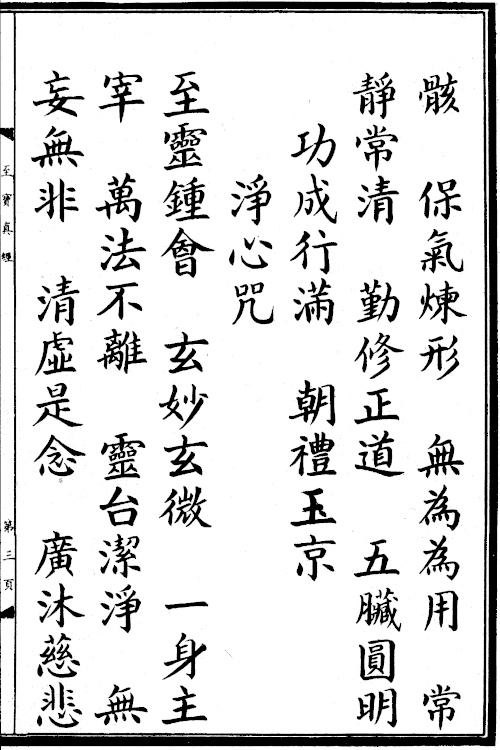 骸　保氣煉形　無為為用　常
靜常清　勤修正道　五臟圓明
功成行滿　朝禮玉京
淨心咒
至靈鍾會　玄妙玄微　一身主
宰　萬法不離　靈台潔淨　無
妄無非　清虛是念　廣沐慈悲
至寶真經
第三頁